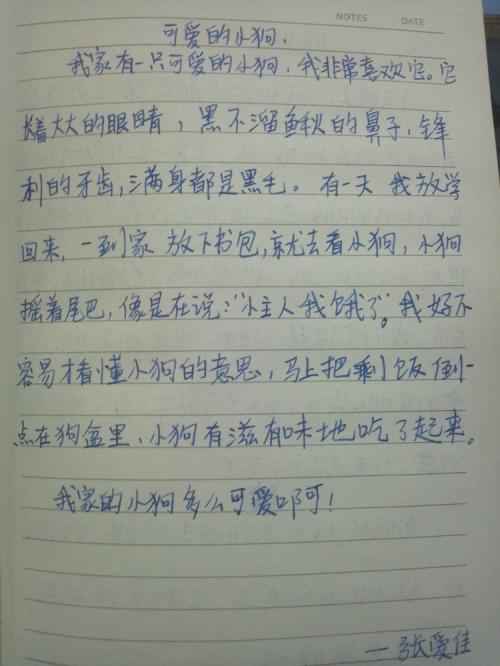 NOTES DATE
可爱的小狗.
我家有一只可爱的小狗,我非常喜欢它。它
长着大大的眼睛,黑不溜鳅的鼻子,锋
利的牙齿,满身都是黑毛。有一天 我放学
回来,一到家 放下书包,就去看小狗,小狗
摇着尾巴,像是在说:“小主人我饿了”。我好不
容易才看懂小狗的意思,马上把剩饭倒一
点在狗盆里,小狗有滋有味地吃了起来。
我家的小狗多么可爱啊!
—张爱佳